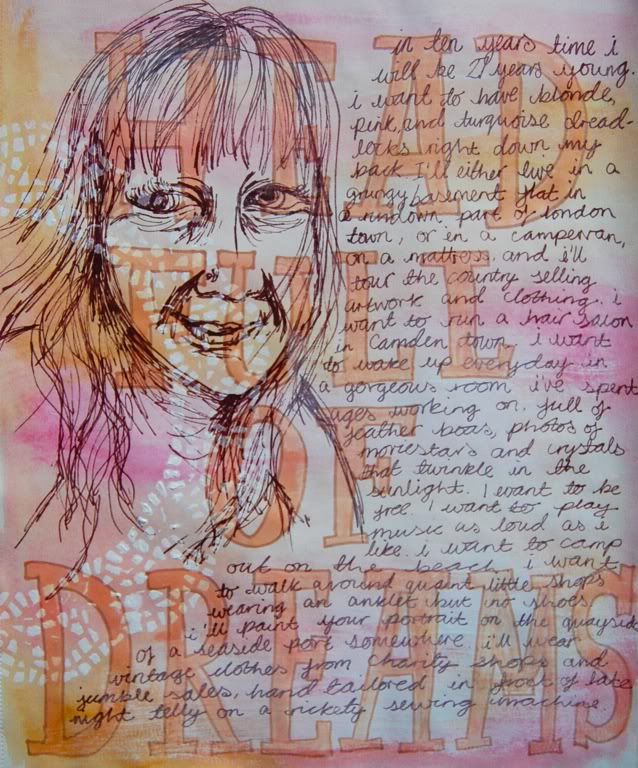 HEAD
FULL
OF
DREAMS
in ten years time i
will be 27 years young.
i want to have blonde,
pink, and turquoise dread-
locks right down my
back. I'll either live in a
grungy basement flat in
a rundown part of london
town, or in a campervan,
on a mattress. and i'll
tour the country selling
artwork and clothing. i
want to run a hair salon
in Camden town. i want
to wake up everyday in
a gorgeous room i've spent
ages working on. full of
feather boas, photos of
moviestars and crystals
that twinkle in the
sunlight. i want to be
free. i want to play
music as loud as i
like. i want to camp
out on the beach. i want
to walk around quaint little shops
wearing an anklet but no shoes.
i'll paint your portrait on the quayside
of a seaside port somewhere. i'll wear
vintage clothes from charity shops and
jumble sales, hand tailored in front of late
night telly on a rickety sewing machine.